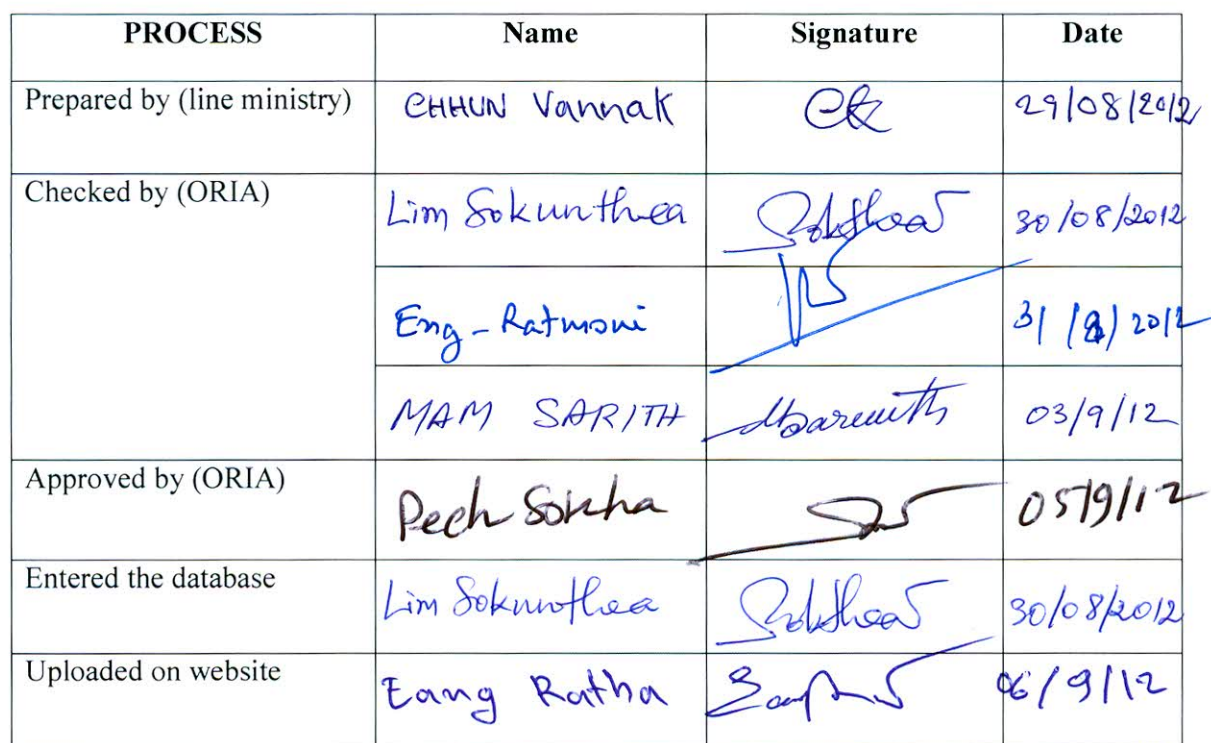 PROCESS Name Signature Date
Prepared by (line ministry) CHHUN Vannak 29/08/2012
Checked by (ORIA) Lim Sokunthea 30/08/2012
Eng-Ratmoni 31/8/2012
MAM SARITH 03/9/12
Approved by (ORIA) Pech Sokha 05/9/12
Entered the database Lim Sokunthea 30/08/2012
Uploaded on website Eang Ratha 06/9/12